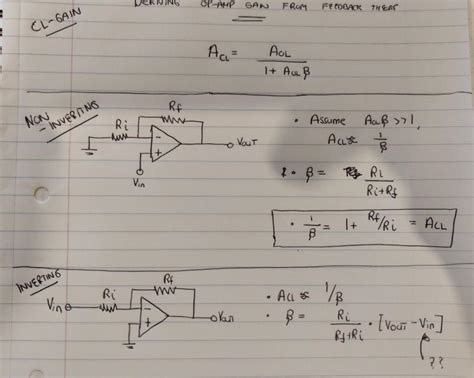 DERIVING OP-AMP GAIN FROM FEEDBACK THEORY
CL-GAIN
A_CL = A_OL / (1 + A_OL β)
NON
-INVERTING
Ri
Rf
VOUT
Vin
• Assume A_OL β >> 1,
A_CL ≈ 1/β
• β = Ri / (Ri+Rf)
• 1/β = 1 + Rf/Ri = A_CL
INVERTING
Vin
Ri
Rf
Vout
• A_CL ≈ 1/β
• β = Ri / (Rf+Ri) • [VOUT - Vin]
??